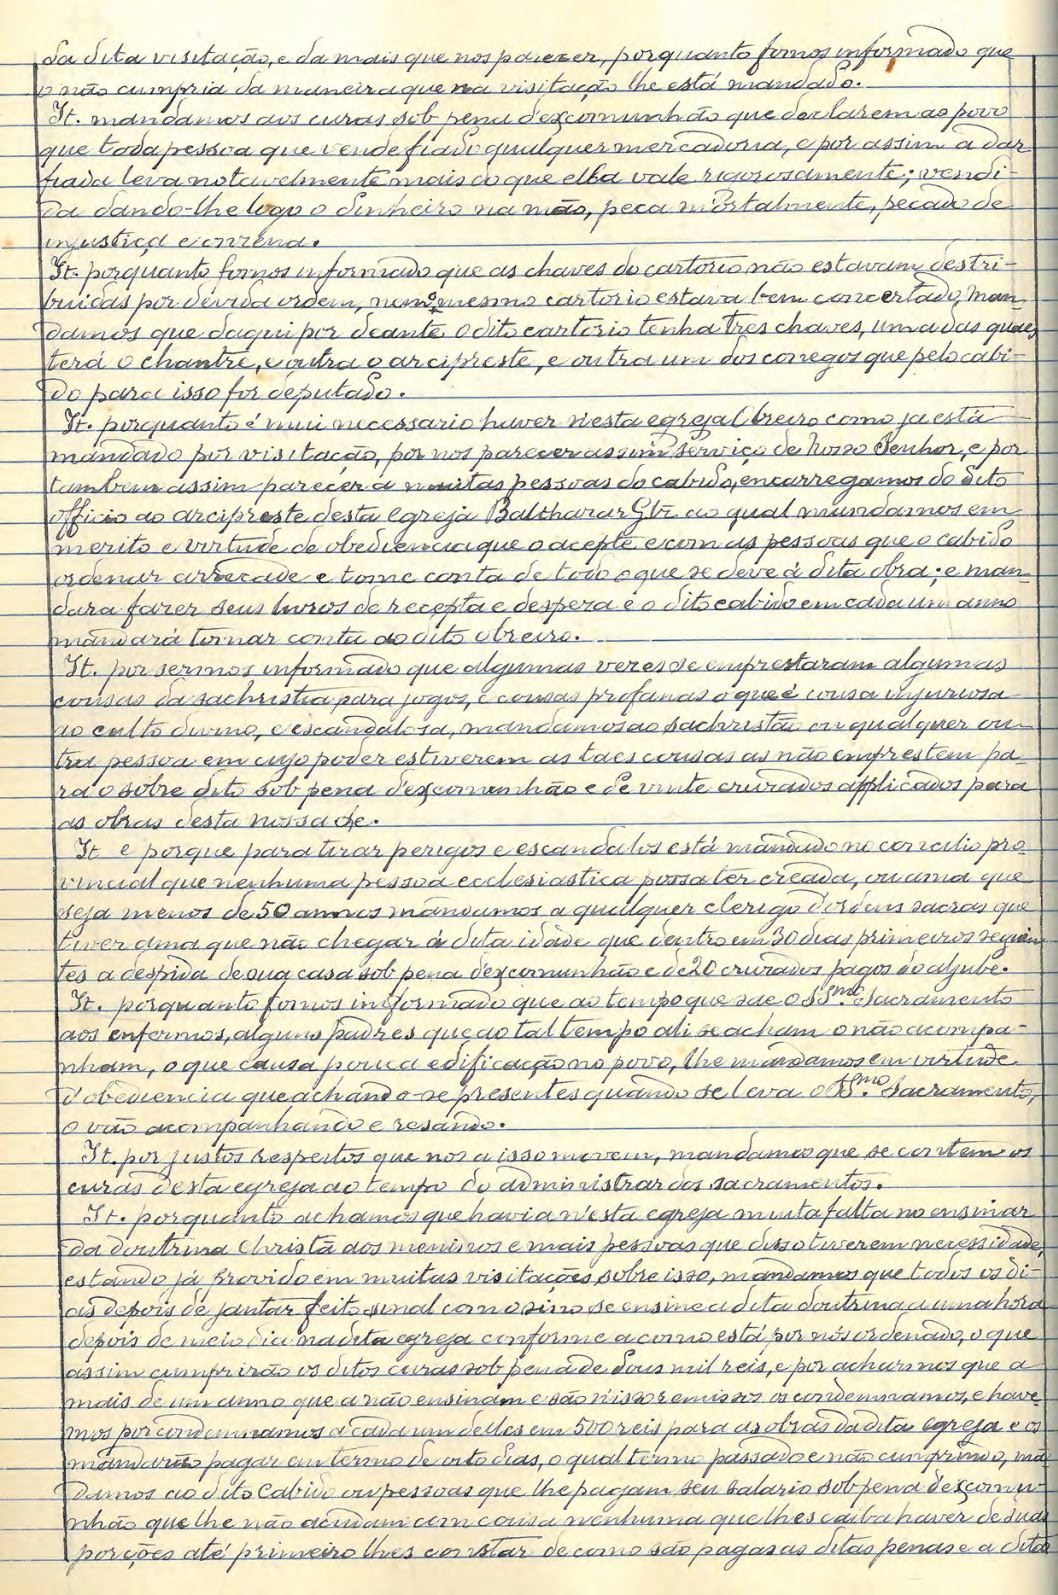 da dita visitação, e da mais que nos parecer, porquanto fomos informado que
o não cumpria da maneira que na visitação lhe está mandado.
It. mandamos aos curas sob pena d'excomunhão que declarem ao povo
que toda pessoa que vende fiado qualquer mercadoria, e por assim a dar
fiada leva notavelmente mais do que ella vale rigorosamente; vendi-
da dando-lhe logo o dinheiro na mão, peca mortalmente, pecado de
injustiça e onzena.
It. porquanto fomos informado que as chaves do cartorio não estavam destri-
buidas por devida ordem, nem o mesmo cartorio estava bem concertado, man-
damos que daqui por deante o dito cartorio tenha tres chaves, uma das quaes
terá o chantre, e outra o arcipreste, e outra um dos conegos que pelo cabi-
do para isso for deputado.
It. porquanto é mui necessario haver n'esta egreja Obreiro como ja está
mandado por visitação, por nos parecer assim serviço de Nosso Senhor, e por
tambem assim parecer a muitas pessoas do cabido, encarregamos do dito
officio ao arcipreste desta egreja Balthazar Glz ao qual mandamos em
merito e virtude de obediencia que o acepte e com as pessoas que o cabido
ordenar arrecade e tome conta de todo o que se deve á dita obra; e man-
dara fazer seus livros de recepta e despeza e o dito cabido em cada um anno
mandará tomar conta ao dito obreiro.
It. por sermos informado que algumas vezes se emprestaram algumas
cousas da sachristia para jogos, e cousas profanas o que é cousa injuriosa
ao culto divino, e escandalosa, mandamos ao sachristão ou qualquer ou-
tra pessoa em cujo poder estiverem as taes cousas as não emprestem pa-
ra o sobre dito sob pena d'excomunhão e de vinte cruzados applicados para
as obras desta nossa sé.
It. e porque para tirar perigos e escandalos está mandado no concilio pro-
vincial que nenhuma pessoa ecclesiastica possa ter creada, ou ama que
seja menos de 50 annos mandamos a qualquer clerigo d'ordens sacras que
tiver ama que não chegar á dita idade que dentro em 30 dias primeiros seguin-
tes a despida de sua casa sob pena d'excomunhão e de 20 cruzados pagos do aljube.
It. porquanto fomos informado que ao tempo que sae o SSmo. Sacramento
aos enfermos, alguns padres que ao tal tempo ali se acham o não acompa-
nham, o que causa pouca edificação no povo, lhe mandamos em virtude
d'obediencia que achando-se presentes quando se leva o SSmo. Sacramento,
o vão acompanhando e resando.
It. por justos respeitos que nos a isso movem, mandamos que se contem os
curas desta egreja ao tempo do administrar dos sacramentos.
It. porquanto achamos que havia n'esta egreja muita falta no ensinar
da doutrina Christã aos meninos e mais pessoas que disso tiverem necessidade,
estando já provido em muitas visitações sobre isso, mandamos que todos os di-
as depois de jantar feito sinal com o sino se ensine a dita doutrina a uma hora
depois de meio dia na dita egreja conforme a como está por nós ordenado, o que
assim cumprirão os ditos curas sob pena de dous mil reis, e por acharmos que a
mais de um anno que a não ensinam e são n'isso remissos os condemnamos, e have-
mos por condemnamos a cada um delles em 500 reis para as obras da dita egreja e os
mandarão pagar em termo de oito dias, o qual termo passado e não cumprindo, ma-
damos ao dito Cabido ou pessoas que lhe pagam seu salario sob pena de excomu-
nhão que lhe não acudam com cousa nenhuma que lhes caiba haver de suas
porções até primeiro lhes constar de como são pagas as ditas penas e a dita